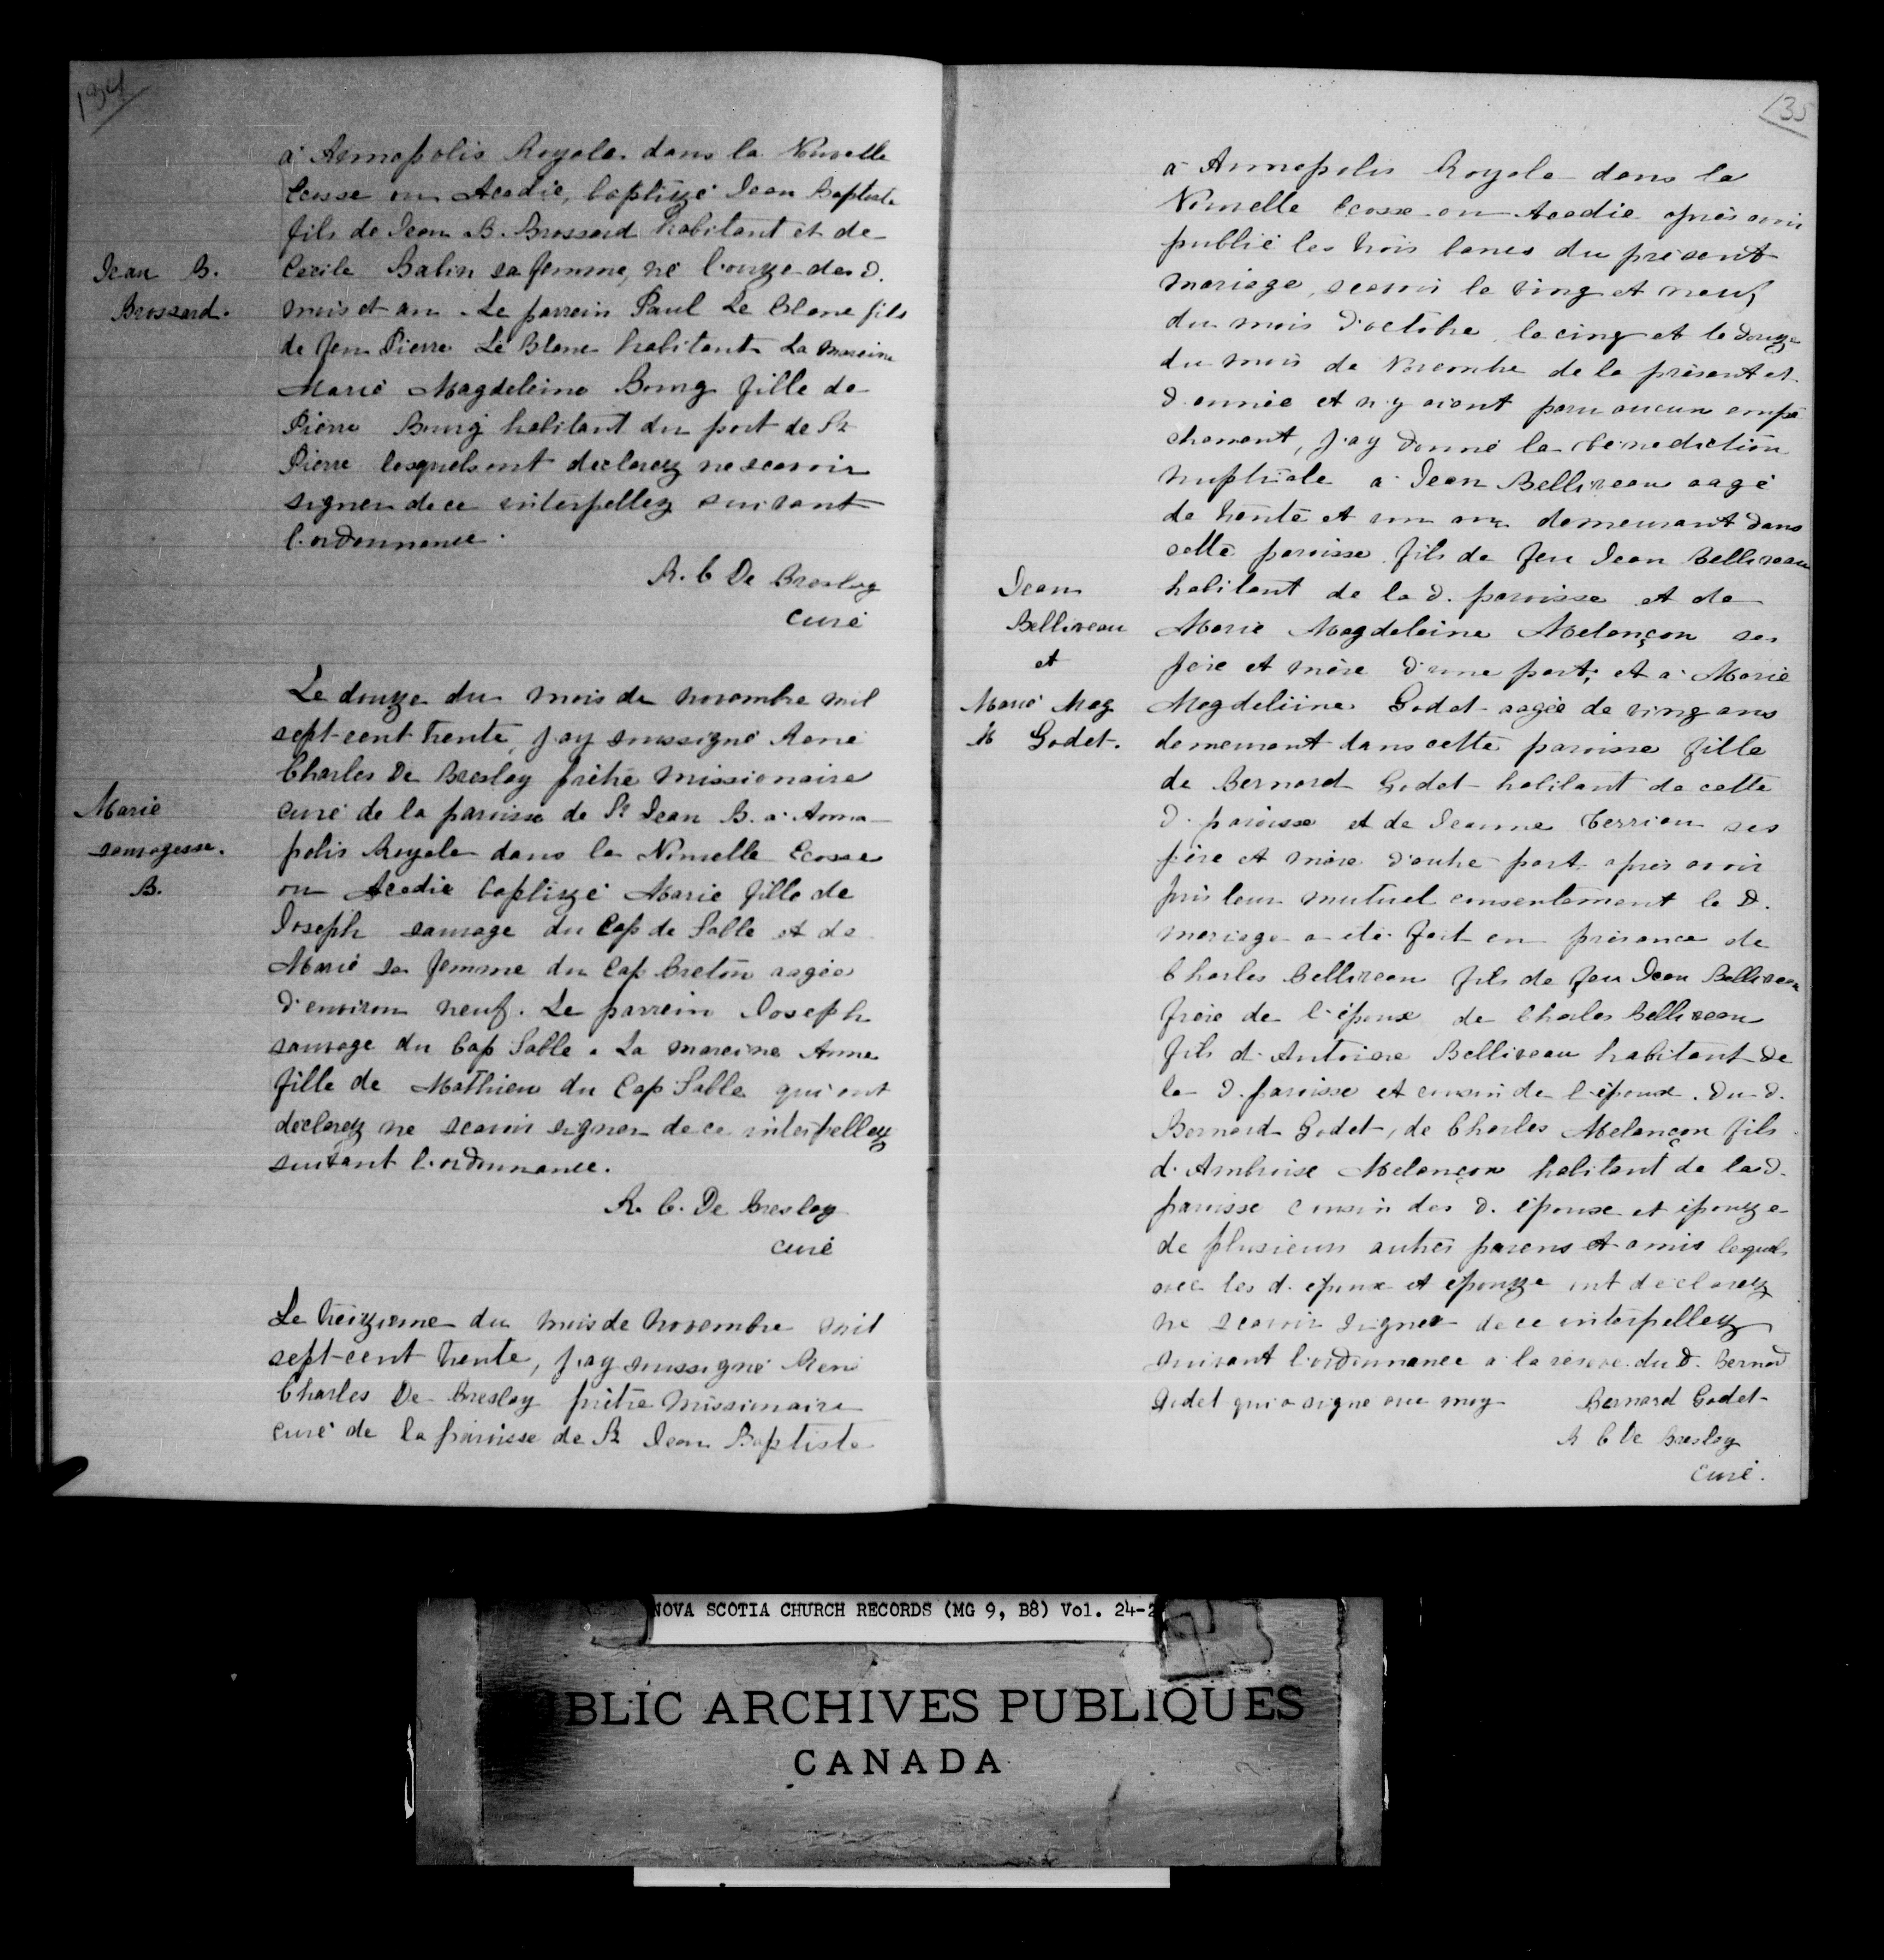 134
à Annapolis Royale dans la Nouvelle
Ecosse ou Acadie, baptizé Jean Baptiste
fils de Jean B. Brossard habitant et de
Jean B.
Brossard.
Cecile Babin sa femme, né l'onze des d.
mois et an. Le parrain Paul Le Blanc fils
de feu Pierre Le Blanc habitant La maraine
Marie Magdeleine Bourg fille de
Pierre Bourg habitant du port de St
Pierre lesquels ont declarez ne scavoir
signer de ce interpellez suivant
l'ordonnance.
R. C De Breslay
curé
Le douze du mois de novembre mil
sept-cent trente, j'ay soussigné René
Charles De Breslay prêtre missionaire
Marie
sauvagesse.
B.
curé de la paroisse de St Jean B. à Anna-
polis Royale dans la Nouvelle Ecosse
ou Acadie baptizé Marie fille de
Joseph sauvage du Cap de Salle et de
Marie sa femme du Cap Breton aagée
d'environ neuf. Le parrein Joseph
sauvage du Cap Salle. La mareine Anne
fille de Mathieu du Cap Salle qui ont
declarez ne scavoir signer de ce interpellez
suivant l'ordonnance.
R. C. De Breslay
curé
Le treizieme du mois de novembre mil
sept-cent trente, j'ay soussigné René
Charles De Breslay prêtre missionaire
curé de la paroisse de St Jean Baptiste
135
à Annapolis Royale dans la
Nouvelle Ecosse ou Acadie après avoir
publié les trois bancs du présent
mariage, scavoir le ving et neuf
du mois d'octobre, le cinq et le douze
du mois de Novembre de la présent et
d. année et n'y aiant paru aucun empê
chement, j'ay donné la bénédiction
nuptiale à Jean Belliveau aagé
de trente et un ans demeurant dans
cette paroisse fils de feu Jean Belliveau
Jean
Belliveau
et
Marie Mag
Godet.
habitant de la d. paroisse et de
Marie Magdeleine Melançon ses
père et mère d'une part; et à Marie
Magdeliine Godet aagée de ving ans
demeurant dans cette paroisse fille
de Bernard Godet habitant de cette
d. paroisse et de Jeanne Terriou ses
père et mère d'autre part apres avoir
pris leur mutuel consentement le d.
mariage a été fait en présance de
Charles Belliveau fils de feu Jean Belliveau
frère de l'époux de Charles Belliveau
fils d'Antoine Belliveau habitant de
la d. paroisse et cousin de l'époux. Du d.
Bernard Godet, de Charles Melançon fils
d'Ambroise Melançon habitant de la d.
paroisse cousin des d. époux et épouze
de plusieurs autres parens et amis lesquels
avec les d. epoux et epouze ont declarez
ne scavoir signer de ce interpellez
suivant l'ordonnance à la réserve du d. Bernard
Godet qui a signé avec moy Bernard Godet
R C De Breslay
curé.
NOVA SCOTIA CHURCH RECORDS (MG 9, B8) Vol. 24-2
BLIC ARCHIVES PUBLIQUES
CANADA